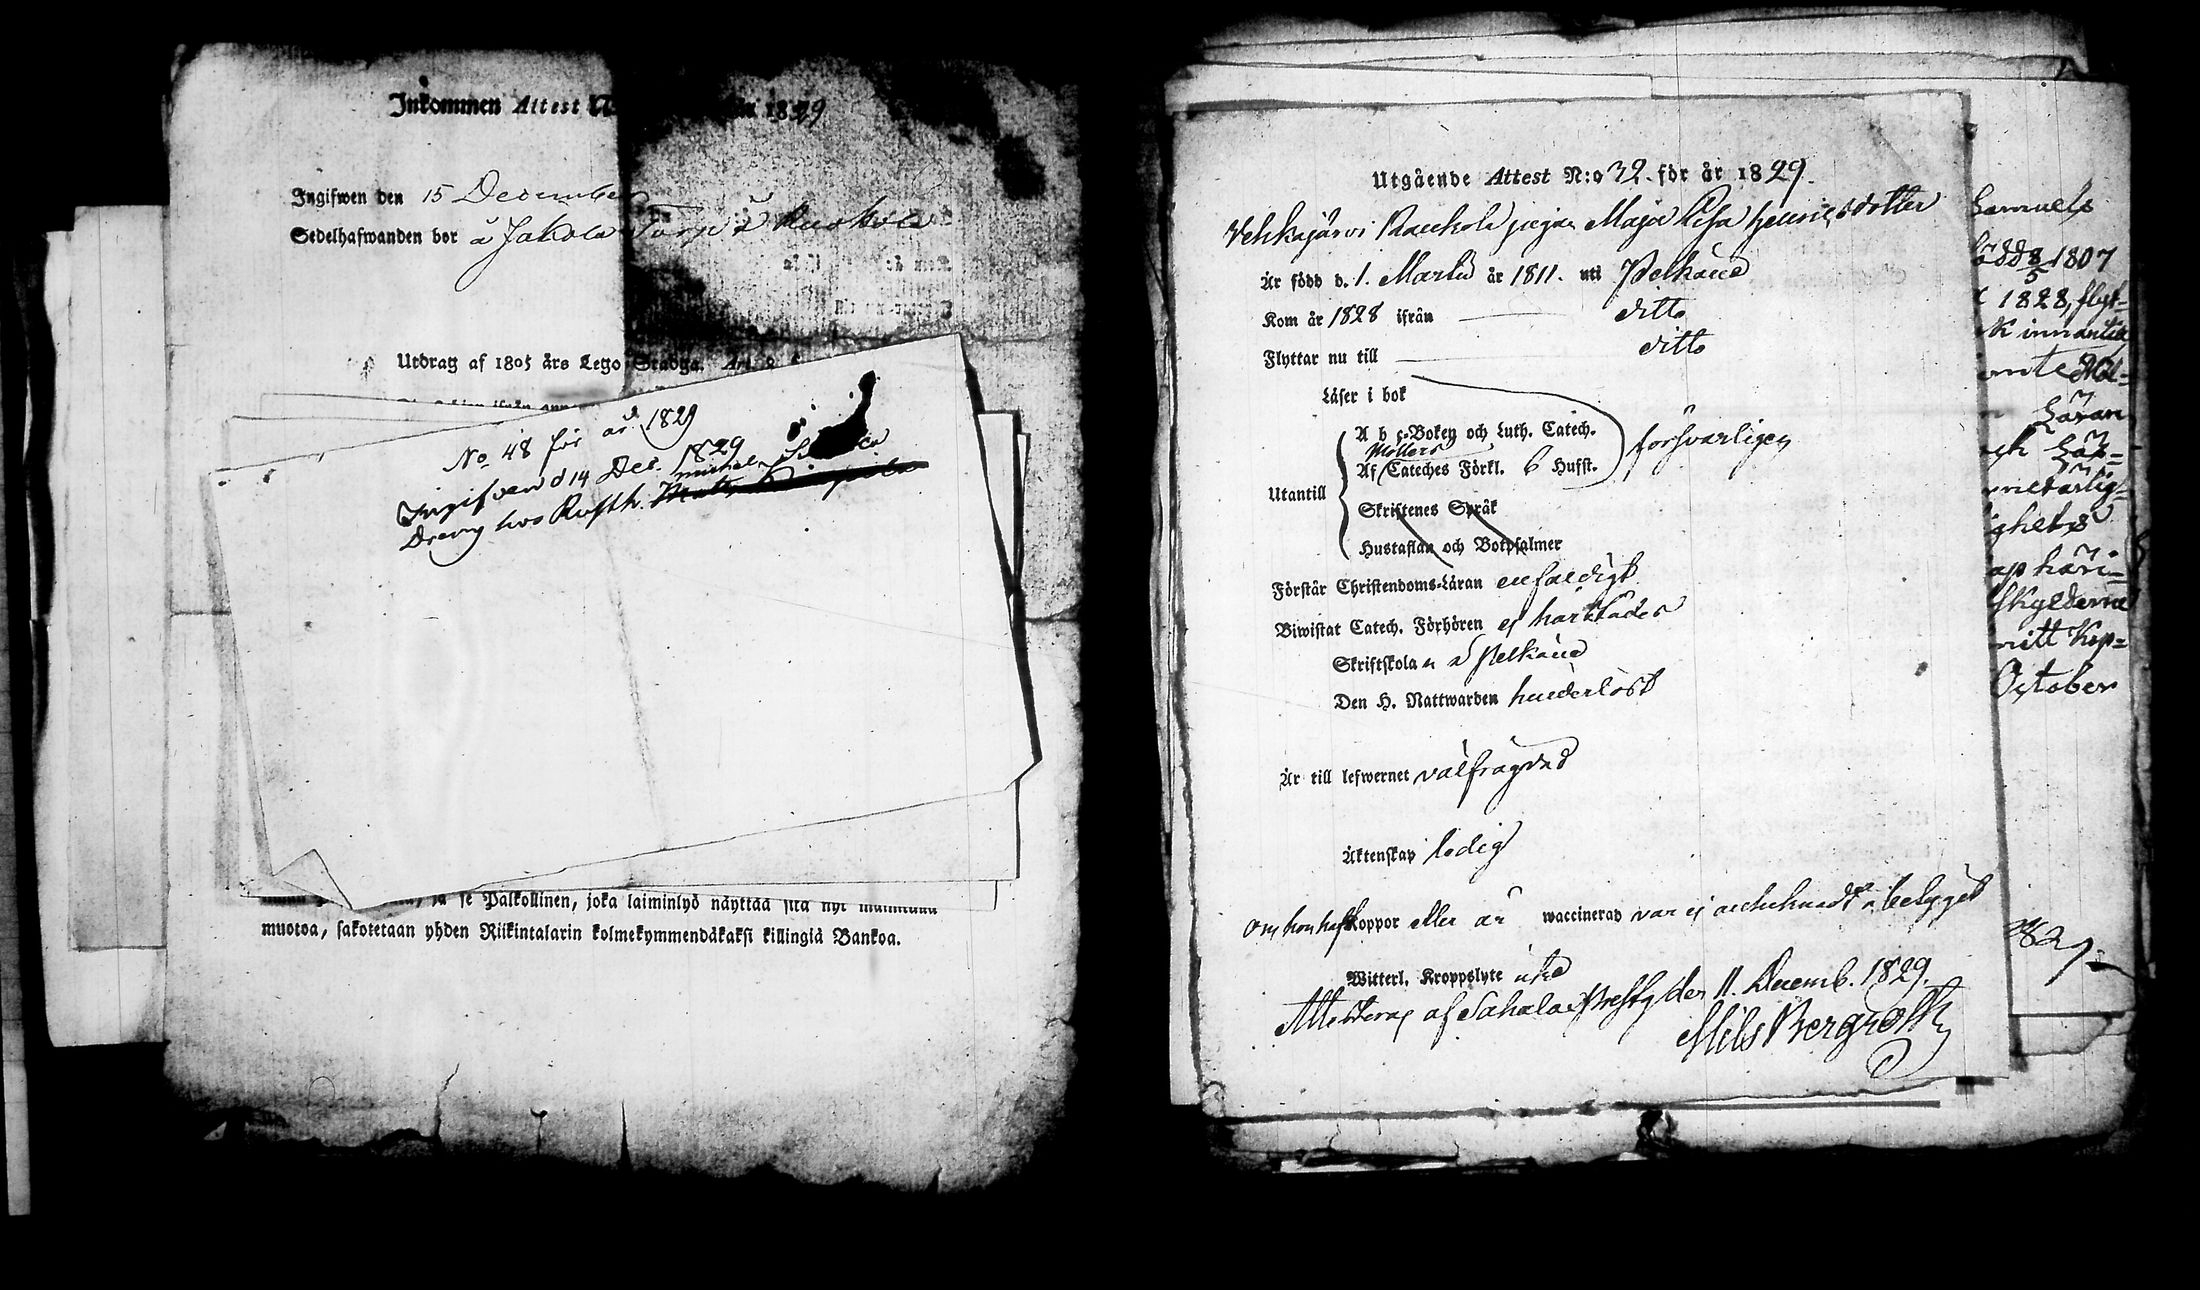 Inkommen Attest
år 1829
Ingifwen den 15 December
Sedelhafwanden bor å Jakola Torp å Ruokola
Utdrag af 1805 års Lego-Stadga. Art.
No 48 för år 1829
Ingifven d 14 Dec. 1829
Dreng hos Rusth. Michel
se Palkollinen, joka laiminlyö näyttää sitä nyt
muotoa, sakotetaan yhden Riikintalarin kolmekymmendäkaksi killingiä Bankoa.
Utgående Attest N:o 32 för år 1829.
Vehkajärvi pigan Maja Lisa Henricsdotter
Är född d. 1. Martii år 1811. uti Pelkäne
Kom år 1828 ifrån ditto
Flyttar nu till ditto
Läser i bok
Utantill
A b c-Boken och Luth. Catech.
Möllers
Af Cateches Förkl. 6 Hufst.
försvarligen
Skriftenes Språk
Hustaflan och Botpsalmer
Förstår Christendoms-Läran enfaldigt
Biwistat Catech. Förhören ej härstädes
Skriftskolan i Pelkäne
Den H. Nattwarden hinderlöst
Är till lefwernet välfrägdad
Äktenskap ledig
Om hon haft Koppor eller är waccinerad var ej
Witterl. Kroppslyte
Attesterar af Sahalax Prestg. den 11. Decemb. 1829.
Nils Bergroth
Samuels
född 8/5 1807
1828, flyt-
innantill
Läran
October